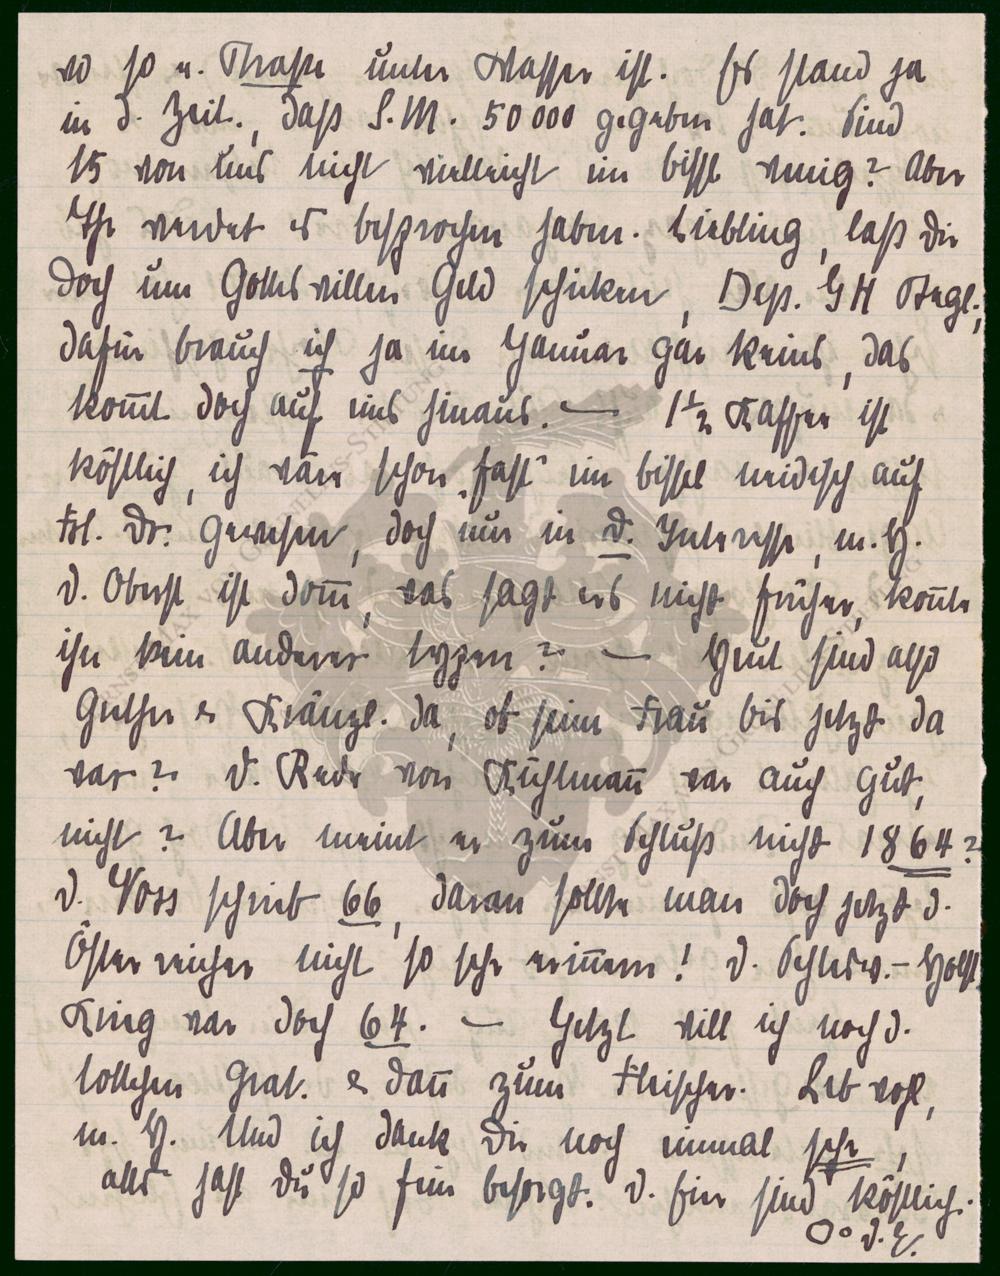 wo so e. Masse unter Wasser ist. Es stand ja
in d. Zeit., daß S.M. 50000 gegeben hat. Sind
15 von uns nicht vielleicht ein bissl wenig? Aber
Ihr werdet es besprochen haben. Liebling, laß Dir
doch um Gottes willen Geld schicken, Dep. G H
dafür brauch ich ja im Januar gar keins, das
kom̅t doch auf eins hinaus. — 1½ Kaffee ist
köstlich, ich wäre schon „fast" ein bissel neidisch auf
Frl. Dr. gewesen, doch nur in d. Interesse, m. H.
d. Oberst ist dom̅, was sagt ers nicht früher, kon̅te
ihr kein anderer tippen? — Heut sind also
Günther & Kränzl. da, ob seine Frau bis jetzt da
war? D. Rede von Kühlman̅ war auch gut,
nicht? Aber meint er zum Schluß nicht 1864?
D. Voss schrieb 66, daran sollte man doch jetzt d.
Österreicher nicht so sehr erin̅ern! D. Schlesw.-Holst.
Krieg war doch 64. — Jetzt will ich noch d.
Lottchen grat. & dan̅ zum Fleischer. Leb wohl,
m. H. Und ich dank Dir noch einmal sehr,
alles hast Du so fein besorgt. D. Eier sind köstlich.
O° d. E.
ERNST-MAX VON GRÜNELIUS-STIFTUNG